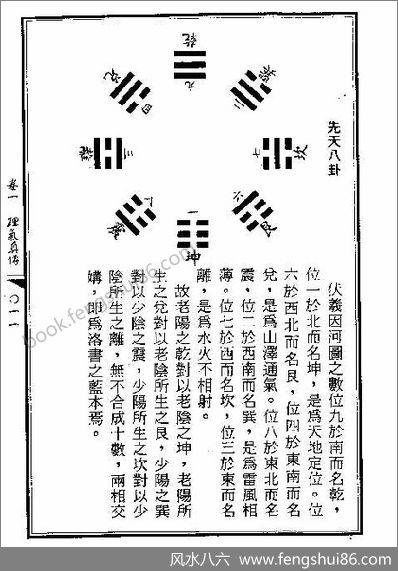 先天八卦
乾
九
兌
四
巽
二
離
三
坎
七
震
八
艮
六
一
坤
伏羲因河圖之數位九於南而名乾，
位一於北而名坤，是爲天地定位。位
六於西北而名艮，位四於東南而名
兌，是爲山澤通氣。位八於東北而名
震，位二於西南而名巽，是爲雷風相
薄。位七於西而名坎，位三於東而名
離，是爲水火不相射。
故老陽之乾對以老陰之坤，老陽所
生之兌對以老陰所生之艮，少陽之巽
對以少陰之震，少陽所生之坎對以少
陰所生之離，無不合成十數，兩相交
媾，即爲洛書之藍本焉。
卷一 理氣真傳
〇一一
book.fengshui86.com
风水八六 www.fengshui86.com